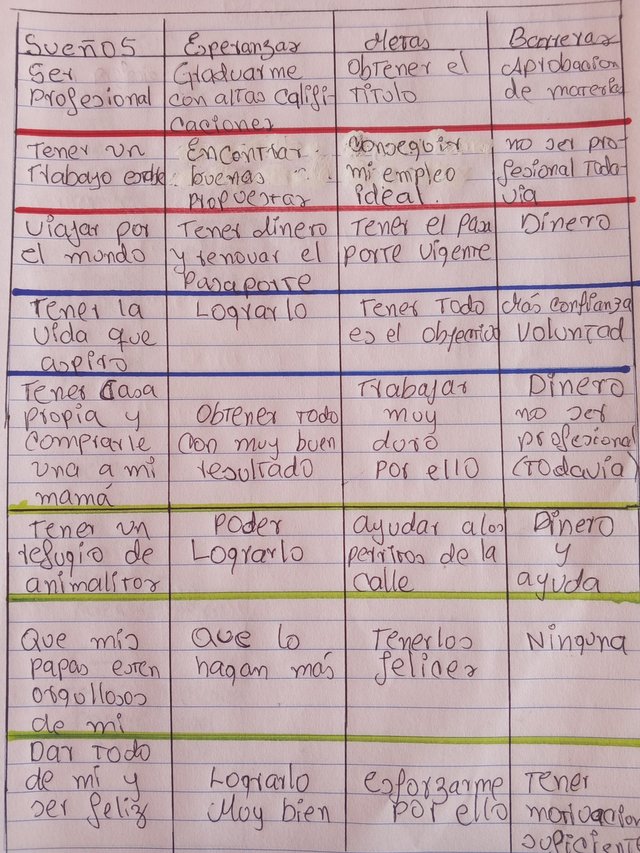 Sueños Esperanzas Metas Barreras
Ser profesional
Graduarme con altas Califi-
caciones
Obtener el titulo
Aprobacion de materias
Tener un
Trabajo estable
Encontrar
buenas
propuestas
Conseguir
mi empleo
ideal.
no ser pro-
fesional Toda-
via
Viajar por
el mundo
Tener dinero
y renovar el
Pasaporte
Tener el Pasa
porte vigente
Dinero
Tener la
vida que
aspiro
Lograrlo
Tener Todo
es el objetivo
Más confianza
Voluntad
Tener Casa
propia y
comprarle
una a mi
mamá
Obtener Todo
con muy buen
resultado
Trabajar
muy
duro
por ello
Dinero
no ser
profesional
(Todavía)
Tener un
refugio de
animalitos
Poder
Lograrlo
ayudar a los
perritos de la
calle
Dinero
y
ayuda
Que mis
papas esten
orgullosos
de mi
Que lo
hagan más
Tenerlos
felices
Ninguna
Dar Todo
de mi y
ser feliz
Lograrlo
Muy bien
esforzarme
por ello
Tener
motivacion
suficiente